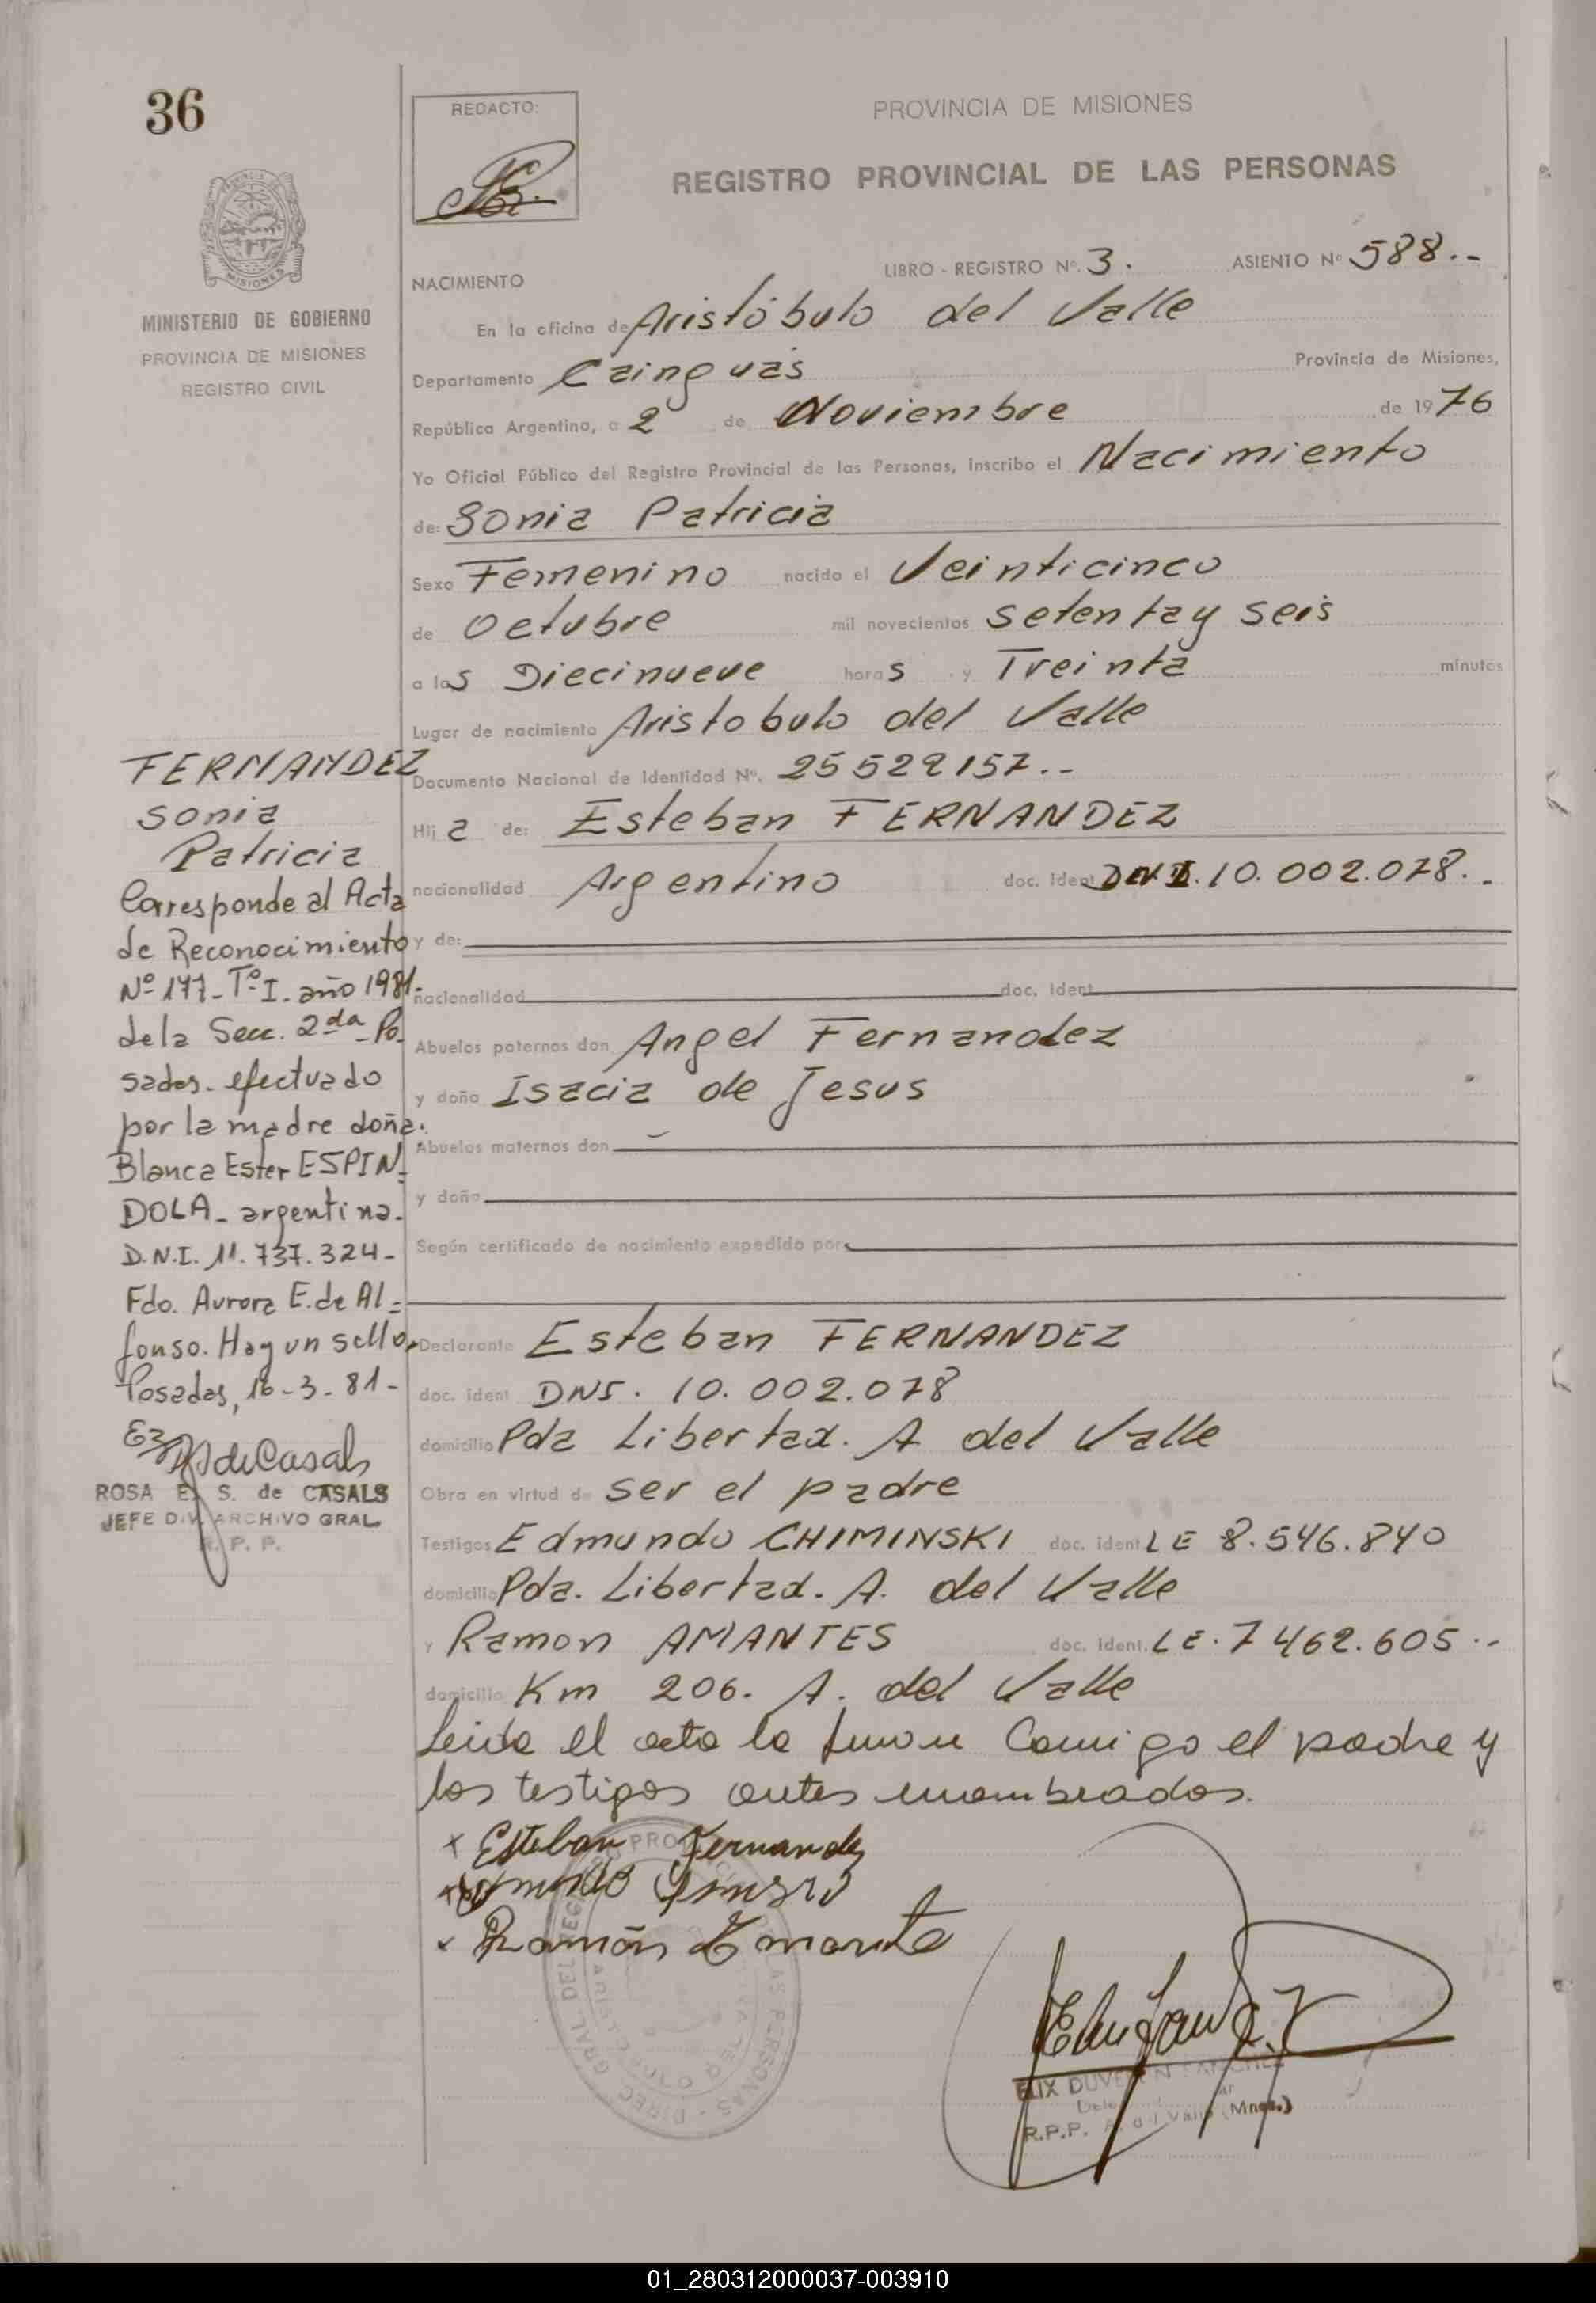 36
REDACTO:
PROVINCIA DE MISIONES
REGISTRO PROVINCIAL DE LAS PERSONAS
MISIONES
MINISTERIO DE GOBIERNO
PROVINCIA DE MISIONES
REGISTRO CIVIL
LIBRO - REGISTRO Nº. 3. ASIENTO Nº 588.--
NACIMIENTO
En la oficina de Aristóbulo del Valle
Departamento Cainguás Provincia de Misiones,
República Argentina, a 2 de Noviembre de 1976
Yo Oficial Público del Registro Provincial de las Personas, inscribo el Nacimiento
de: Sonia Patricia
Sexo Femenino nacido el Veinticinco
de Octubre mil novecientos setenta y seis
a las Diecinueve horas y Treinta minutos
Lugar de nacimiento Aristobulo del Valle
Documento Nacional de Identidad Nº. 25529157.--
Hija de: Esteban FERNANDEZ
nacionalidad Argentino doc. ident DNI. 10.002.078.-
y de:
nacionalidad doc. ident
Abuelos paternos don Angel Fernandez
y doña Isacia de Jesus
Abuelos maternos don
y doña
Según certificado de nacimiento expedido por
Declarante Esteban FERNANDEZ
doc. ident DNI. 10.002.078
domicilio Pda Libertad. A del Valle
Obra en virtud de ser el padre
Testigos Edmundo CHIMINSKI doc. ident LE 8.546.840
domicilio Pda. Libertad. A. del Valle
y Ramon AMANTES doc. ident. LE. 7462.605.--
domicilio Km 206. A. del Valle
Leida el acta la firman Conmigo el padre y
los testigos antes nombrados.
x Esteban Fernandez
x Ramón Amante
FERNANDEZ
Sonia
Patricia
Corresponde al Acta
de Reconocimiento
Nº 177- Tº I. año 1981.
de la Secc. 2da Po-
sadas- efectuado
por la madre doña.
Blanca Ester ESPIN-
DOLA- argentina.
D.N.I. 11.737.324-
Fdo. Aurora E. de Al=
fonso. Hay un sello.
Posadas, 16-3-81-
de Casals
ROSA E. S. de CASALS
JEFE DIV. ARCHIVO GRAL.
R. P. P.
R.P.P. A. del Valle (Mnes.)
01_280312000037-003910